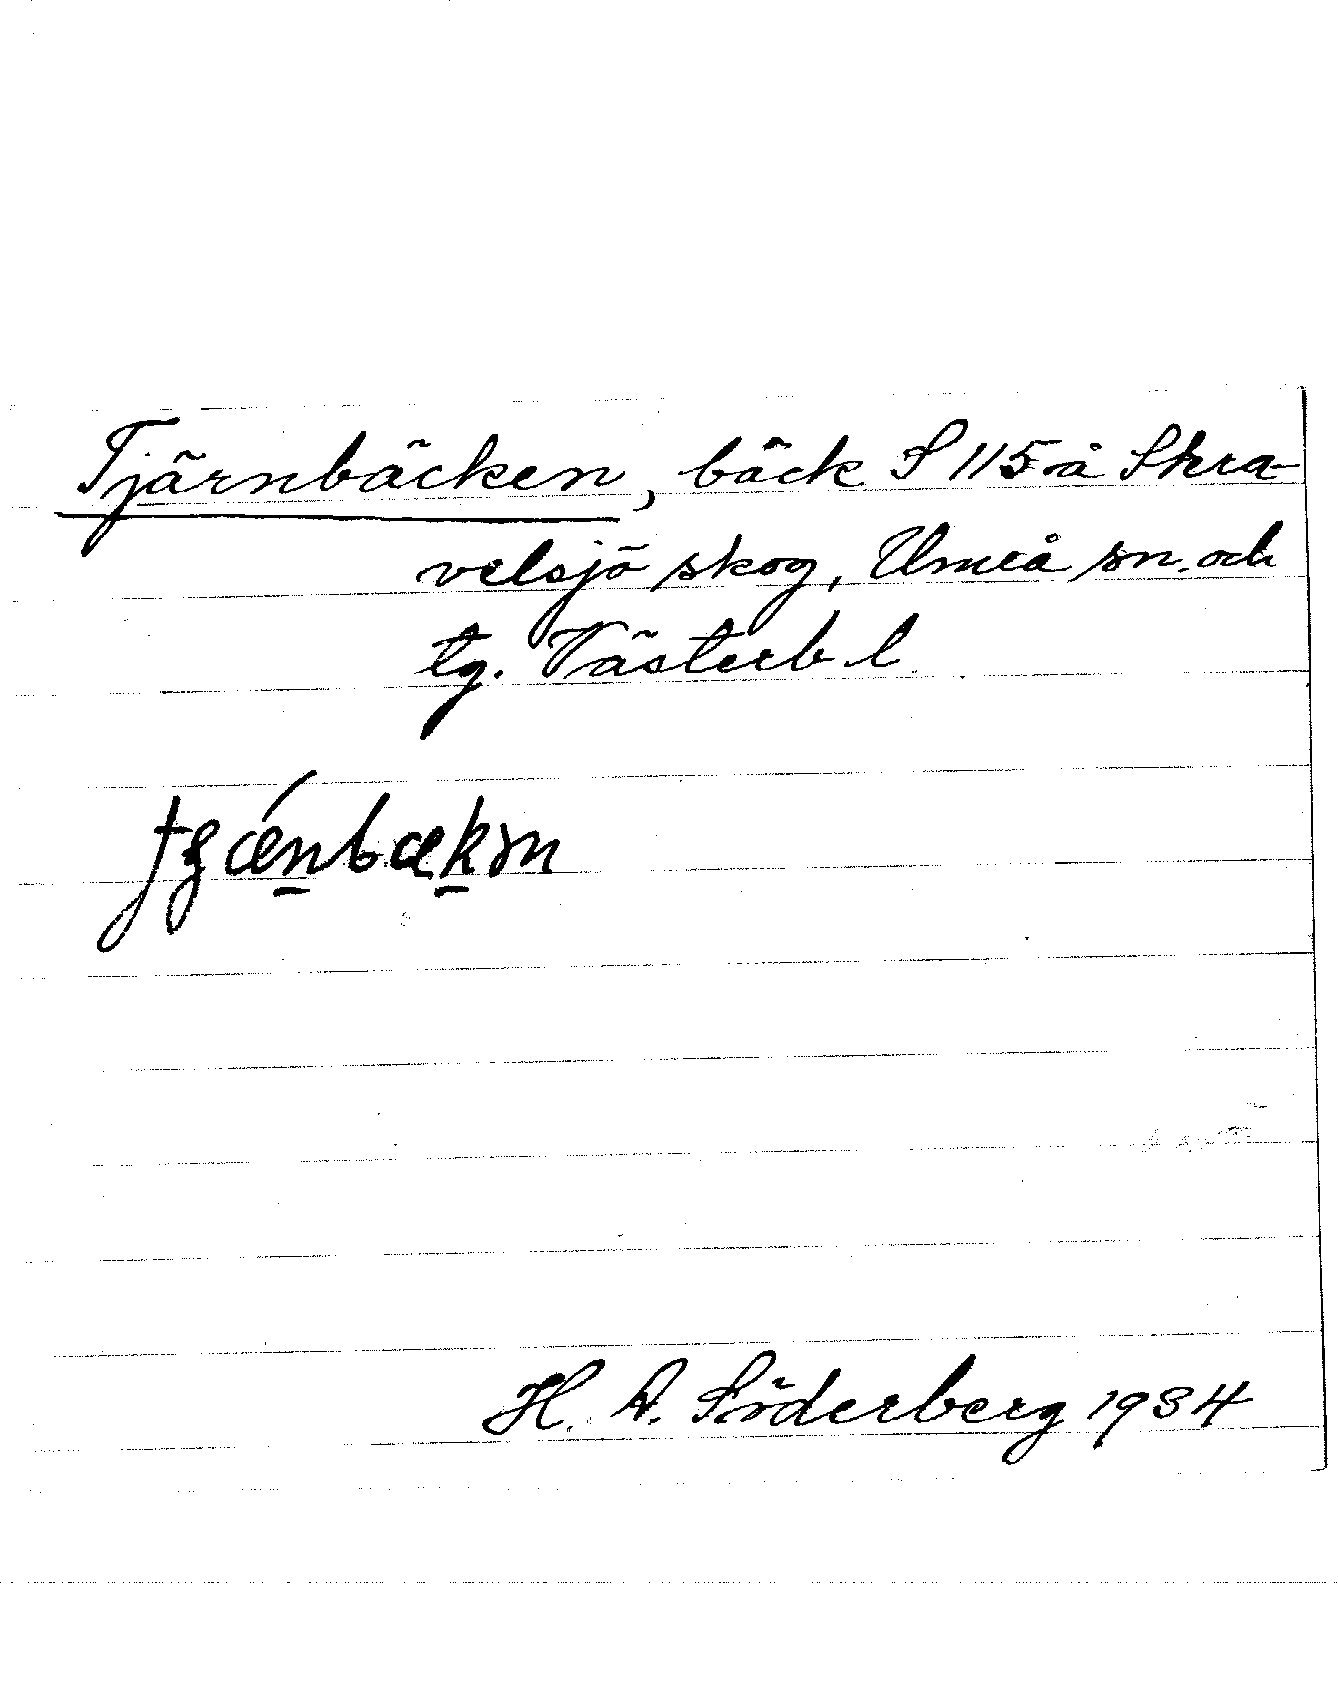 Tjärnbäcken, bäck S 115 å Skra-
velsjö skog, Umeå sn. och
tg. Västerb. l.
H. A. Söderberg 1934